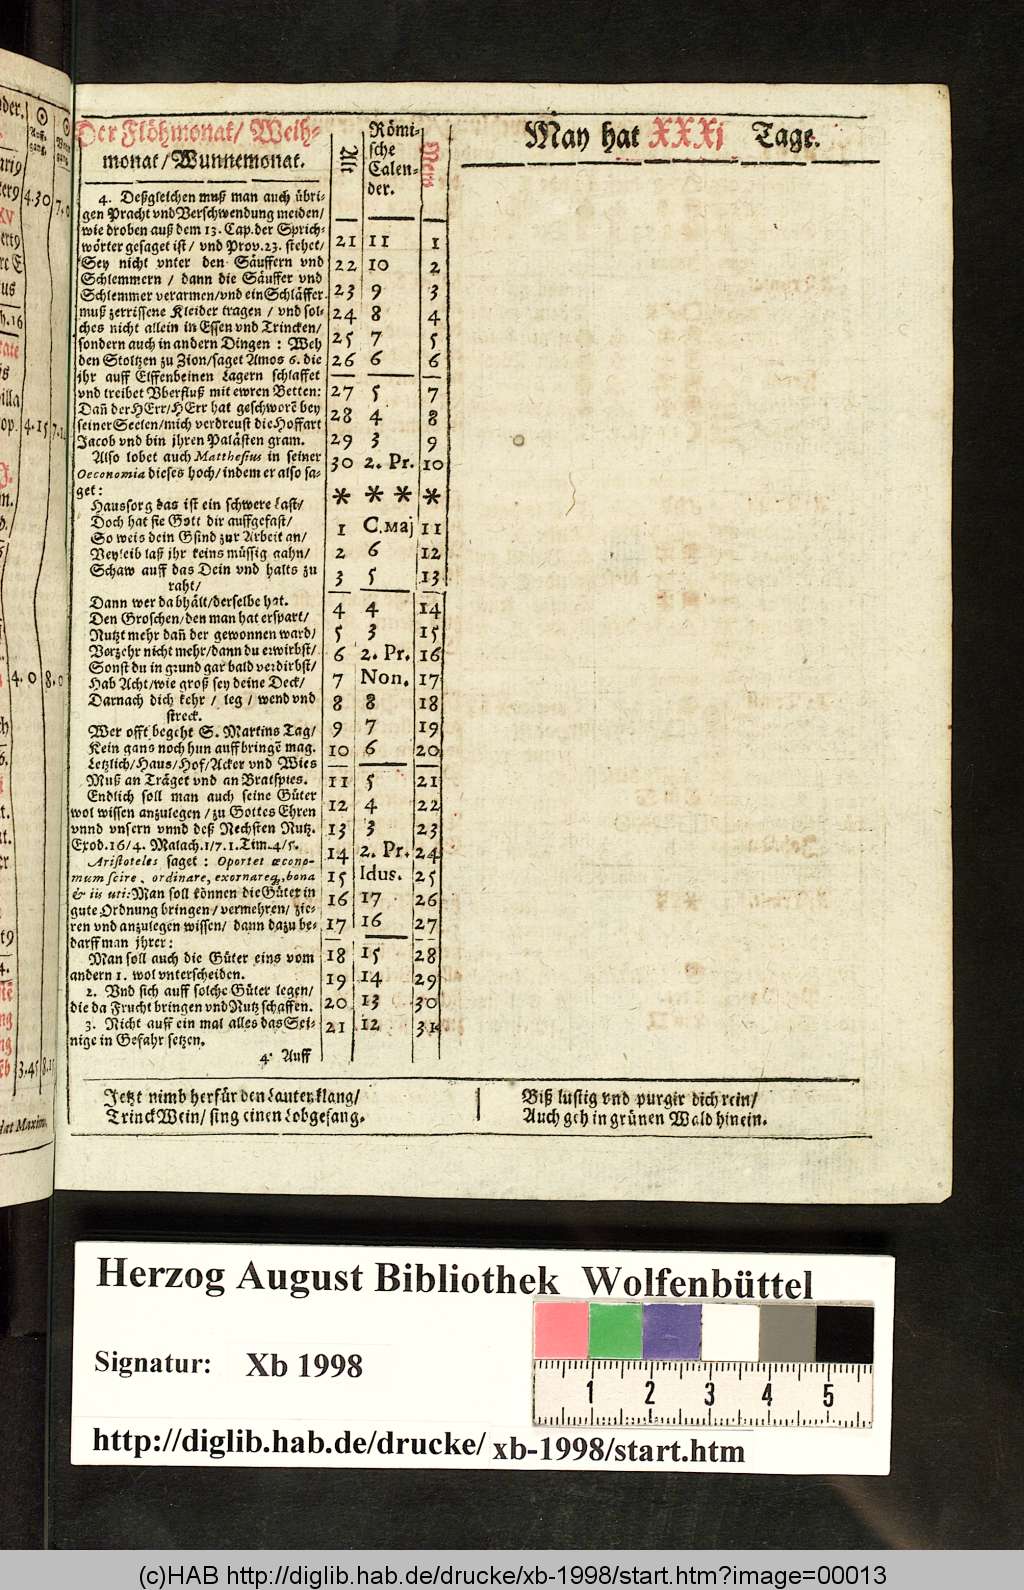 Der Flöhmonat/ Weih-
monat/Wunnemonat.
4. Deßgleichen muß man auch übri-
gen Pracht vnd Verschwendung meiden/
wie droben auß dem 13. Cap. der Sprich-
wörter gesaget ist/ vnd Prov. 23. stehet/
Sey nicht vnter den Säuffern vnd
Schlemmern / dann die Säuffer vnd
Schlemmer verarmen/vnd ein Schläffer
muß zerrissene Kleider tragen / vnd sol-
ches nicht allein in Essen vnd Trincken/
sondern auch in andern Dingen : Weh
den Stoltzen zu Zion/saget Amos 6. die
jhr auff Elffenbeinen Lagern schlaffet
vnd treibet Vberfluß mit ewren Betten:
Dañ der HErr/HErr hat geschworẽ bey
seiner Seelen/mich verdreust die Hoffart
Jacob vnd bin jhren Palästen gram.
Also lobet auch Matthesius in seiner
Oeconomia dieses hoch/ indem er also sa-
get:
Haussorg das ist ein schwere Last/
Doch hat sie Gott dir auffgefast/
So weis dein Gsind zur Arbeit an/
Beyleib laß jhr keins müssig gahn/
Schaw auff das Dein vnd halts zu
raht/
Dann wer da bhält/derselbe hat.
Den Groschen/den man hat erspart/
Nutzt mehr dañ der gewonnen ward/
Verzehr nicht mehr/dann du erwirbst/
Sonst du in grund gar bald verdirbst/
Hab Acht/wie groß sey deine Deck/
Darnach dich kehr / leg / wend vnd
streck.
Wer offt begeht S. Martins Tag/
Kein gans noch hun auff bringẽ mag.
Letzlich/Haus/Hof/Acker vnd Wies
Muß an Träget vnd an Bratspies.
Endlich soll man auch seine Güter
wol wissen anzulegen / zu Gottes Ehren
vnnd vnsern vnnd deß Nechsten Nutz.
Exod. 16/4. Malach. 1/7. 1. Tim. 4/5.
Aristoteles saget : Oportet œcono-
mum scire, ordinare, exornareq;, bona
& iis uti: Man soll können die Güter in
gute Ordnung bringen/ vermehren/ zie-
ren vnd anzulegen wissen/ dann dazu be-
darff man jhrer:
Man soll auch die Güter eins vom
andern 1. wol vnterscheiden.
2. Vnd sich auff solche Güter legen/
die da Frucht bringen vnd Nutz schaffen.
3. Nicht auff ein mal alles das Sei-
nige in Gefahr setzen.
4. Auff
Alt Römi- New
sche
Calen-
der.
21 11 1
22 10 2
23 9 3
24 8 4
25 7 5
26 6 6
27 5 7
28 4 8
29 3 9
30 2. Pr. 10
* * * *
1 C. Maj 11
2 6 12
3 5 13
4 4 14
5 3 15
6 2. Pr. 16
7 Non. 17
8 8 18
9 7 19
10 6 20
11 5 21
12 4 22
13 3 23
14 2. Pr. 24
15 Idus. 25
16 17 26
17 16 27
18 15 28
19 14 29
20 13 30
21 12 31
May hat XXXj Tage.
Jetzt nimb herfür den Lautenklang/
Trinck Wein/ sing einen Lobgesang.
Biß lustig vnd purgir dich rein/
Auch geh in grünen Wald hinein.
4.30 7.0
4.15
4.0 8.0
3.45
Herzog August Bibliothek Wolfenbüttel
Signatur: Xb 1998
1 2 3 4 5
http://diglib.hab.de/drucke/ xb-1998/start.htm
(c)HAB http://diglib.hab.de/drucke/xb-1998/start.htm?image=00013